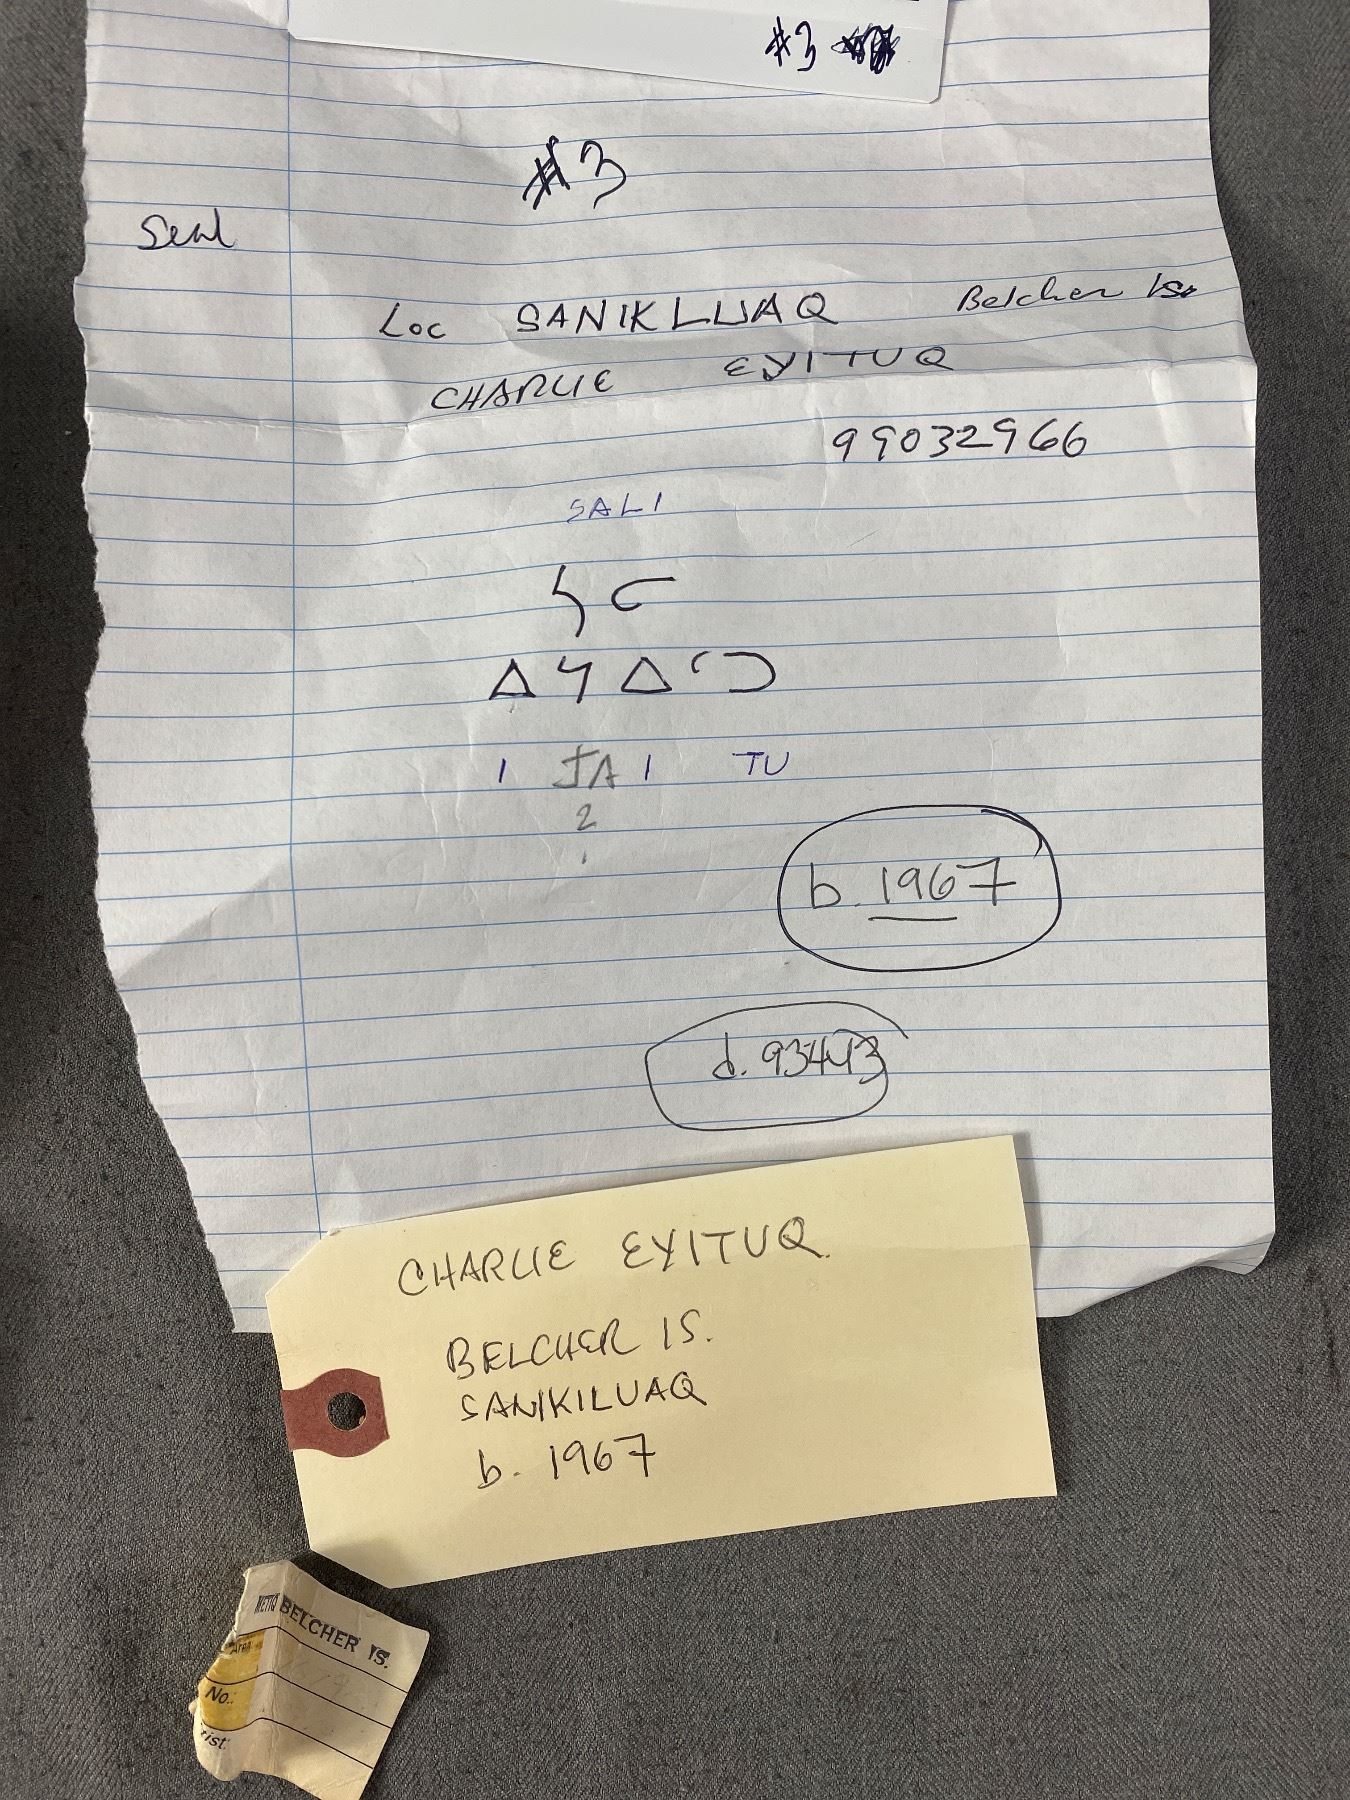 #3
#3
Seal
Loc SANIKLUAQ Belcher Is.
CHARLIE EYITUQ
99032966
SALI
ᓴᓕ
ᐃᔭᐃᑐ
I JA I TU
2
b. 1967
d. 93443
CHARLIE EYITUQ.
BELCHER IS.
SANIKILUAQ
b. 1967
BELCHER IS.
Area:
No.: